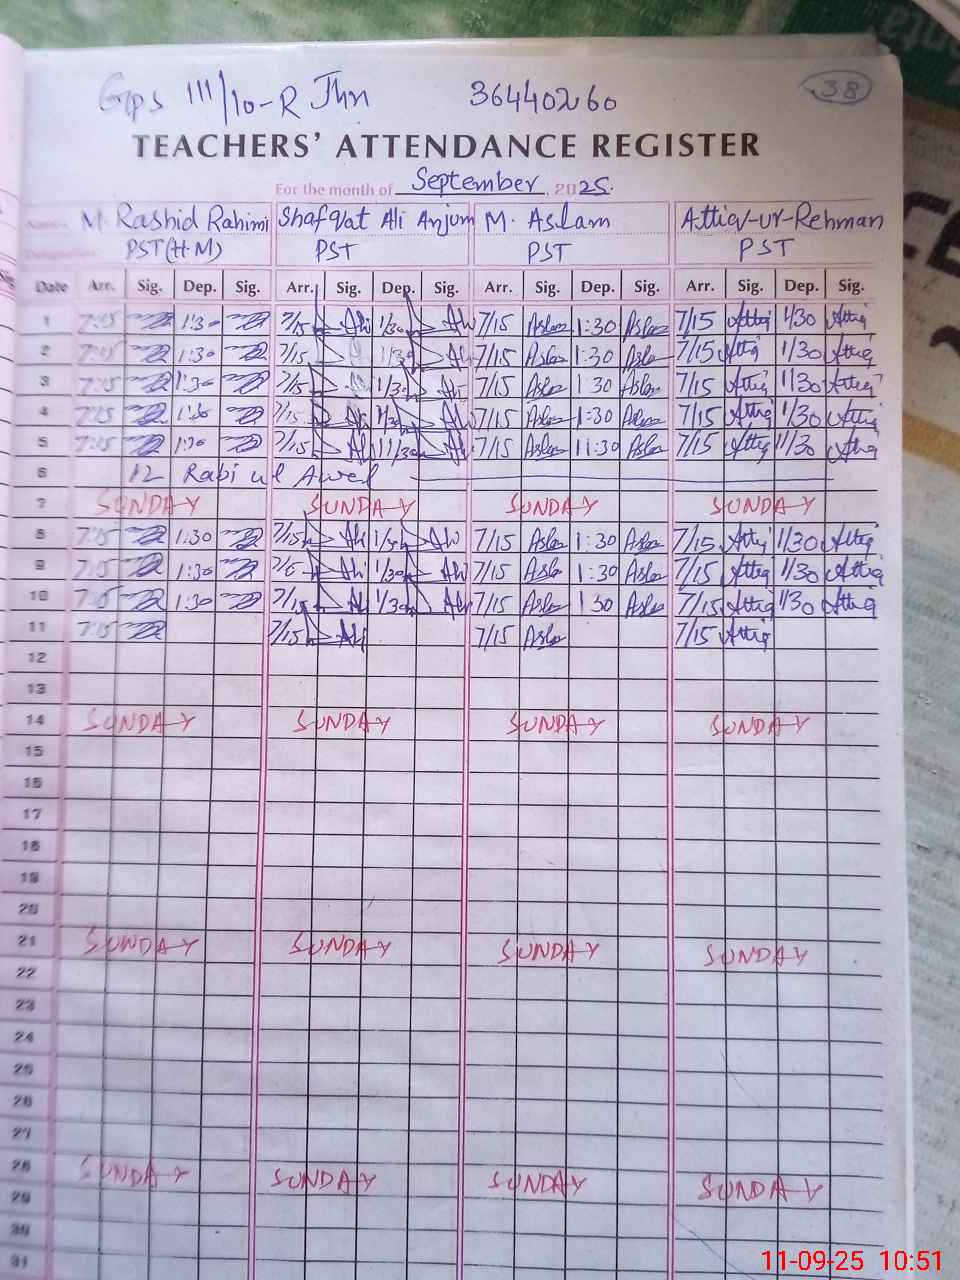 Gps 111/10-R Jhn 36440260 38
TEACHERS' ATTENDANCE REGISTER
For the month of September, 2025.
Name M. Rashid Rahimi Shafqat Ali Anjum M. Aslam Attiq-ur-Rehman
Designation PST(H.M) PST PST PST
Date Arr. Sig. Dep. Sig. Arr. Sig. Dep. Sig. Arr. Sig. Dep. Sig. Arr. Sig. Dep. Sig.
1 7:15 1:30 7/15 Ali 1/30 Ali 7/15 Aslam 1:30 Aslam 7/15 Attiq 1/30 Attiq
2 7:15 1:30 7/15 1/30 Ali 7/15 Aslam 1:30 Aslam 7/15 Attiq 1/30 Attiq
3 7:15 1:30 7/15 1/30 Ali 7/15 Aslam 1:30 Aslam 7/15 Attiq 1/30 Attiq
4 7:15 1:30 7/15 Ali 1/30 Ali 7/15 Aslam 1:30 Aslam 7/15 Attiq 1/30 Attiq
5 7:15 7/15 Ali 11/30 Ali 7/15 Aslam 11:30 Aslam 7/15 Attiq 11/30 Attiq
6 12 Rabi ul Awel
7 SUNDAY SUNDAY SUNDAY SUNDAY
8 7:15 1:30 7/15 Ali 1/30 Ali 7/15 Aslam 1:30 Aslam 7/15 Attiq 1/30 Attiq
9 7:15 1:30 Ali 1/30 Ali 7/15 Aslam 1:30 Aslam 7/15 Attiq 1/30 Attiq
10 7:15 1:30 7/15 Ali 1/30 Ali 7/15 Aslam 1 30 Aslam 7/15 Attiq 1/30 Attiq
11 7:15 7/15 Ali 7/15 Aslam 7/15 Attiq
12
13
14 SUNDAY SUNDAY SUNDAY SUNDAY
15
16
17
18
19
20
21 SUNDAY SUNDAY SUNDAY SUNDAY
22
23
24
25
26
27
28 SUNDAY SUNDAY SUNDAY SUNDAY
29
30
31
11-09-25 10:51